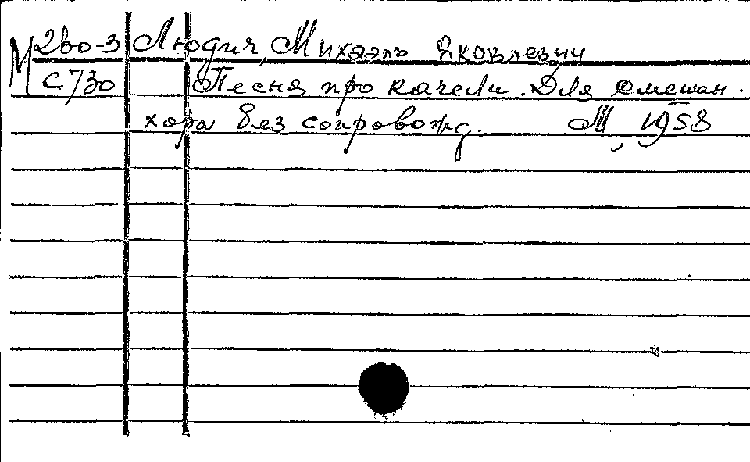 М 2во-3 Людич, Михаэль Яковлевич
С730 Песня про качели. Для смешан.
хора без сопровожд. М, 1958